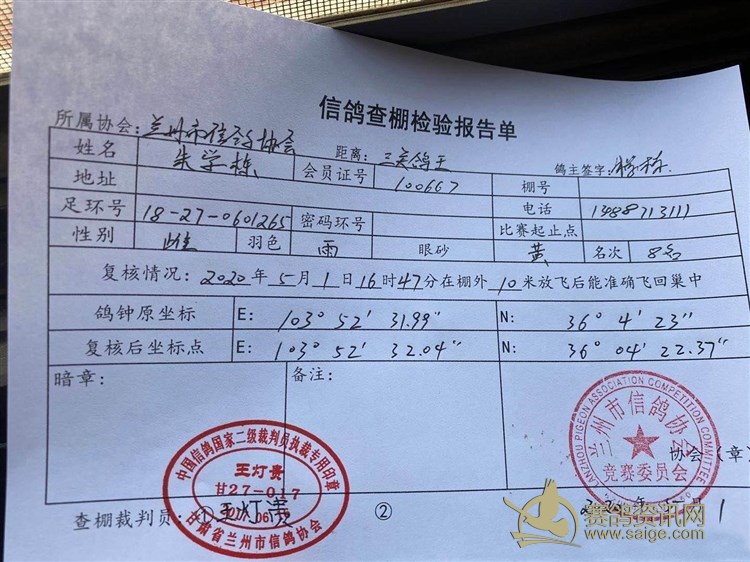 信鸽查棚检验报告单
所属协会：兰州市信鸽协会 距离：三关鸽王 鸽主签字：
姓名 朱学栋 会员证号 100667 棚号
地址 电话
足环号 18-27-0601265 密码环号 比赛起止点
性别 雌 羽色 雨 眼砂 黄 名次 8名
复核情况：2020年5月1日16时47分在棚外10米放飞后能准确飞回巢中
鸽钟原坐标 E: 103° 52′ 31.99″ N: 36° 4′ 23″
复核后坐标点 E: 103° 52′ 32.04″ N: 36° 04′ 22.37″
暗章： 备注：
中国信鸽国家二级裁判员执裁专用印章
王灯贵
甘27-017
甘肃省兰州市信鸽协会
LANZHOU PIGEON ASSOCIATION COMPETITION COMMITTEE
兰州市信鸽协会
竞赛委员会
协会（章）
查棚裁判员：① 王灯贵 ②
赛鸽资讯网
www.saige.com